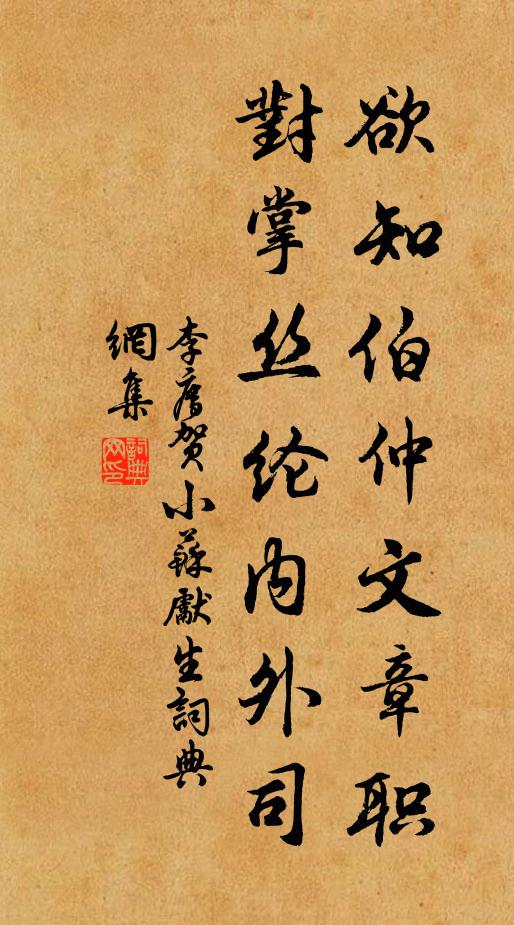 欲知伯仲文章职
對掌丝纶内外司
李廌贺小蘇獻生詞典
網集
詞典网印